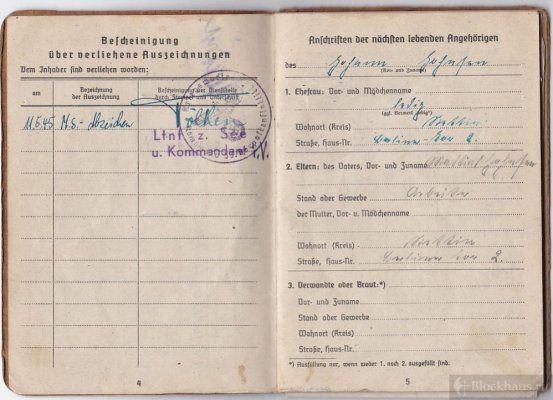 Bescheinigung
über verliehene Auszeichnungen
Dem Inhaber sind verliehen worden:
am
Bezeichnung
der Auszeichnung
Bescheinigung der Dienststelle
durch Stempel und Unterschrift
11.5.45 M.S.-Abzeichen
Ltnt. z. See
u. Kommandant i.V.
4
Anschriften der nächsten lebenden Angehörigen
des Johann
(Vor- und Zuname)
1. Ehefrau: Vor- und Mädchenname
ledig
(ggf. Vermerk „ledig“)
Wohnort (Kreis) Stettin
Straße, Haus-Nr. Berliner Tor 2.
2. Eltern: des Vaters, Vor- und Zuname
Stand oder Gewerbe Arbeiter
der Mutter, Vor- u. Mädchenname
Wohnort (Kreis) Stettin
Straße, Haus-Nr. Berliner Tor 2.
3. Verwandte oder Braut:*)
Vor- und Zuname
Stand oder Gewerbe
Wohnort (Kreis)
Straße, Haus-Nr.
*) Ausfüllung nur, wenn weder 1. noch 2. ausgefüllt sind.
5